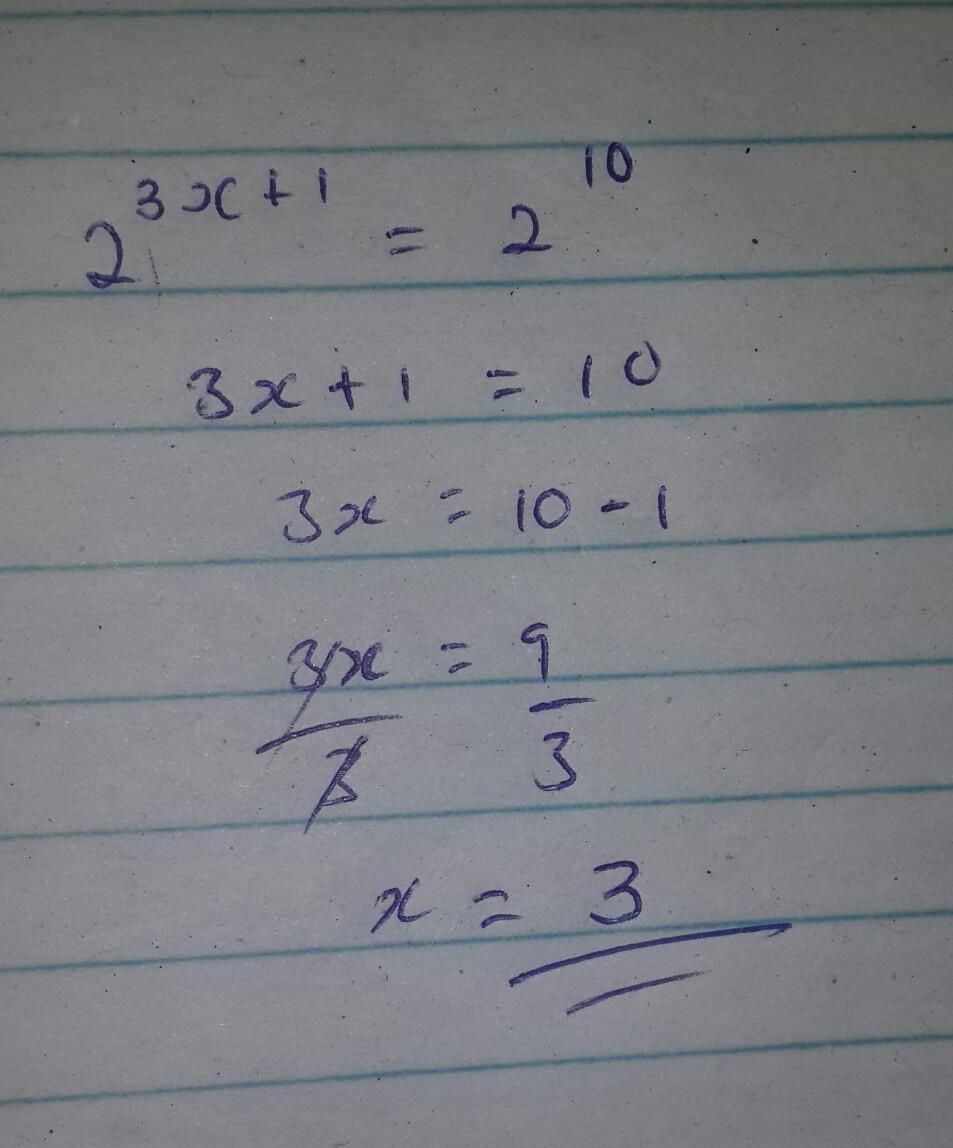 2^{3x+1} = 2^{10}
3x + 1 = 10
3x = 10 - 1
3x/3 = 9/3
x = 3